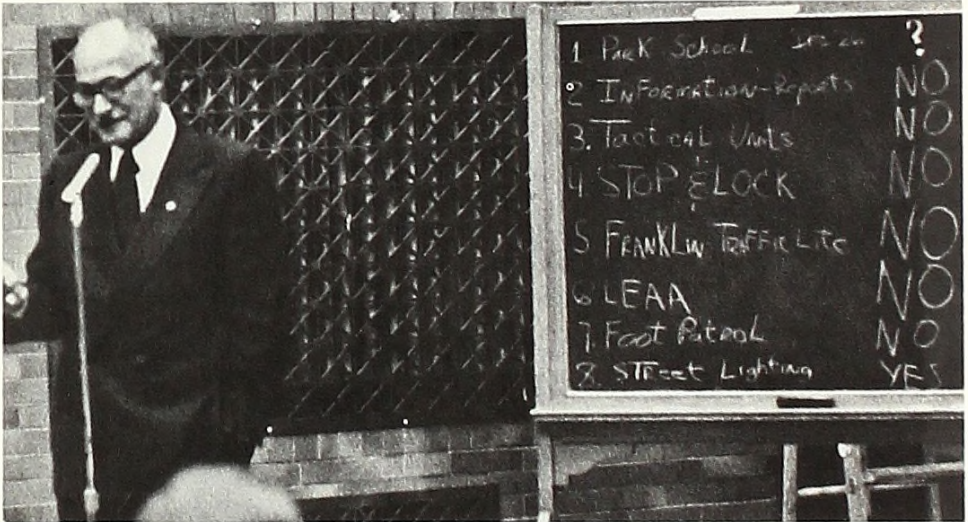 1 Park School ?
2 InFormation-Reports NO
3. Tactical Units NO
4 STOP & LOCK NO
5 FRANKLIN TRAFFIC LITE NO
6 LEAA NO
7. Foot Patrol NO
8. STReet Lighting YES